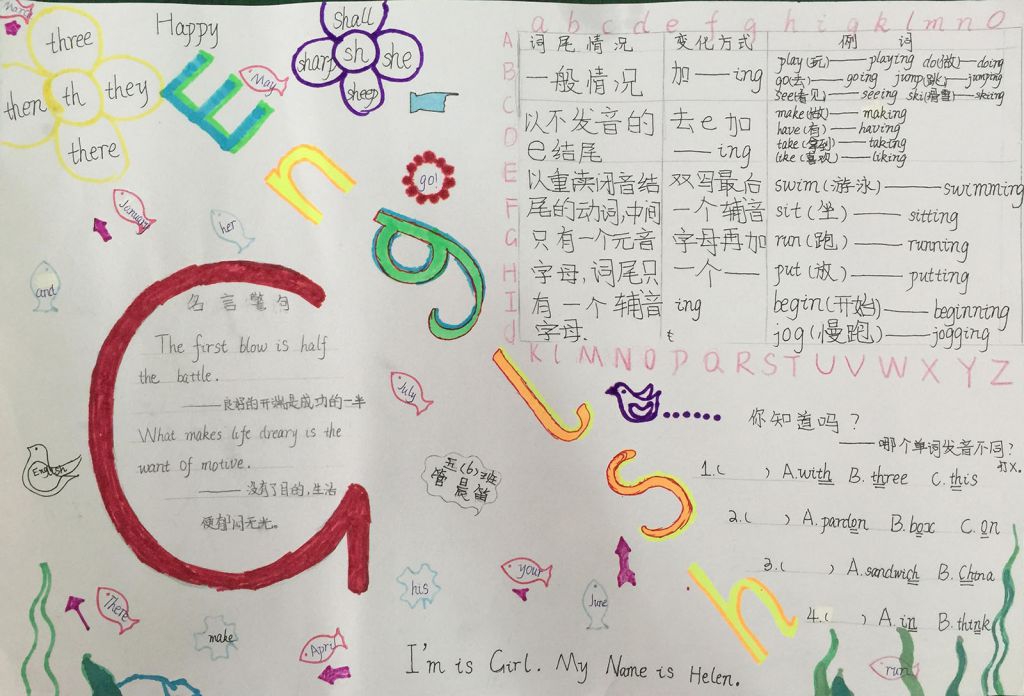 March
three
then th they
there
Happy
shall
sharp sh she
sheep
May
English
January
her
and
go!
July
a b c d e f g h i g k l m n O
A
B
C
D
E
F
G
H
I
J
词尾情况 变化方式 例词
一般情况 加——ing
play(玩)——playing do(做)——doing
go(去)——going jump(跳)——jumping
see(看见)——seeing ski(滑雪)——skiing
以不发音的
e结尾
去e加
——ing
make(做)——making
have(有)——having
take(拿到)——taking
like(喜欢)——liking
以重读闭音结
尾的动词,中间
只有一个元音
字母,词尾只
有一个辅音
字母.
双写最后
一个辅音
字母再加
一个——
ing
t
swim(游泳)——swimming
sit(坐)——sitting
run(跑)——running
put(放)——putting
begin(开始)——beginning
jog(慢跑)——jogging
K L M N O P Q R S T U V W X Y Z
G
名言警句
The first blow is half
the battle.
——良好的开端是成功的一半
What makes life dreary is the
want of motive.
——没有了目的,生活
便郁闷无光。
English
五(6)班
管晨笛
你知道吗?
——哪个单词发音不同?
打X.
1.( ) A.with B. three C. this
2.( ) A.pardon B.box C.on
3.( ) A.sandwich B.China
4.( ) A.in B.think
There
make
April
his
your
June
run
I'm is Girl. My Name is Helen.